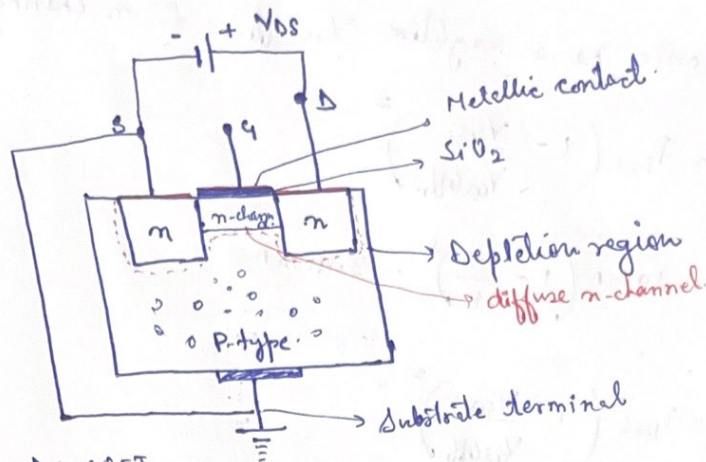 - + VDS
D
S
G
Metallic contact.
SiO2
n
n-chan
n
Depletion region
diffuse n-channel.
P-type.
Substrate terminal